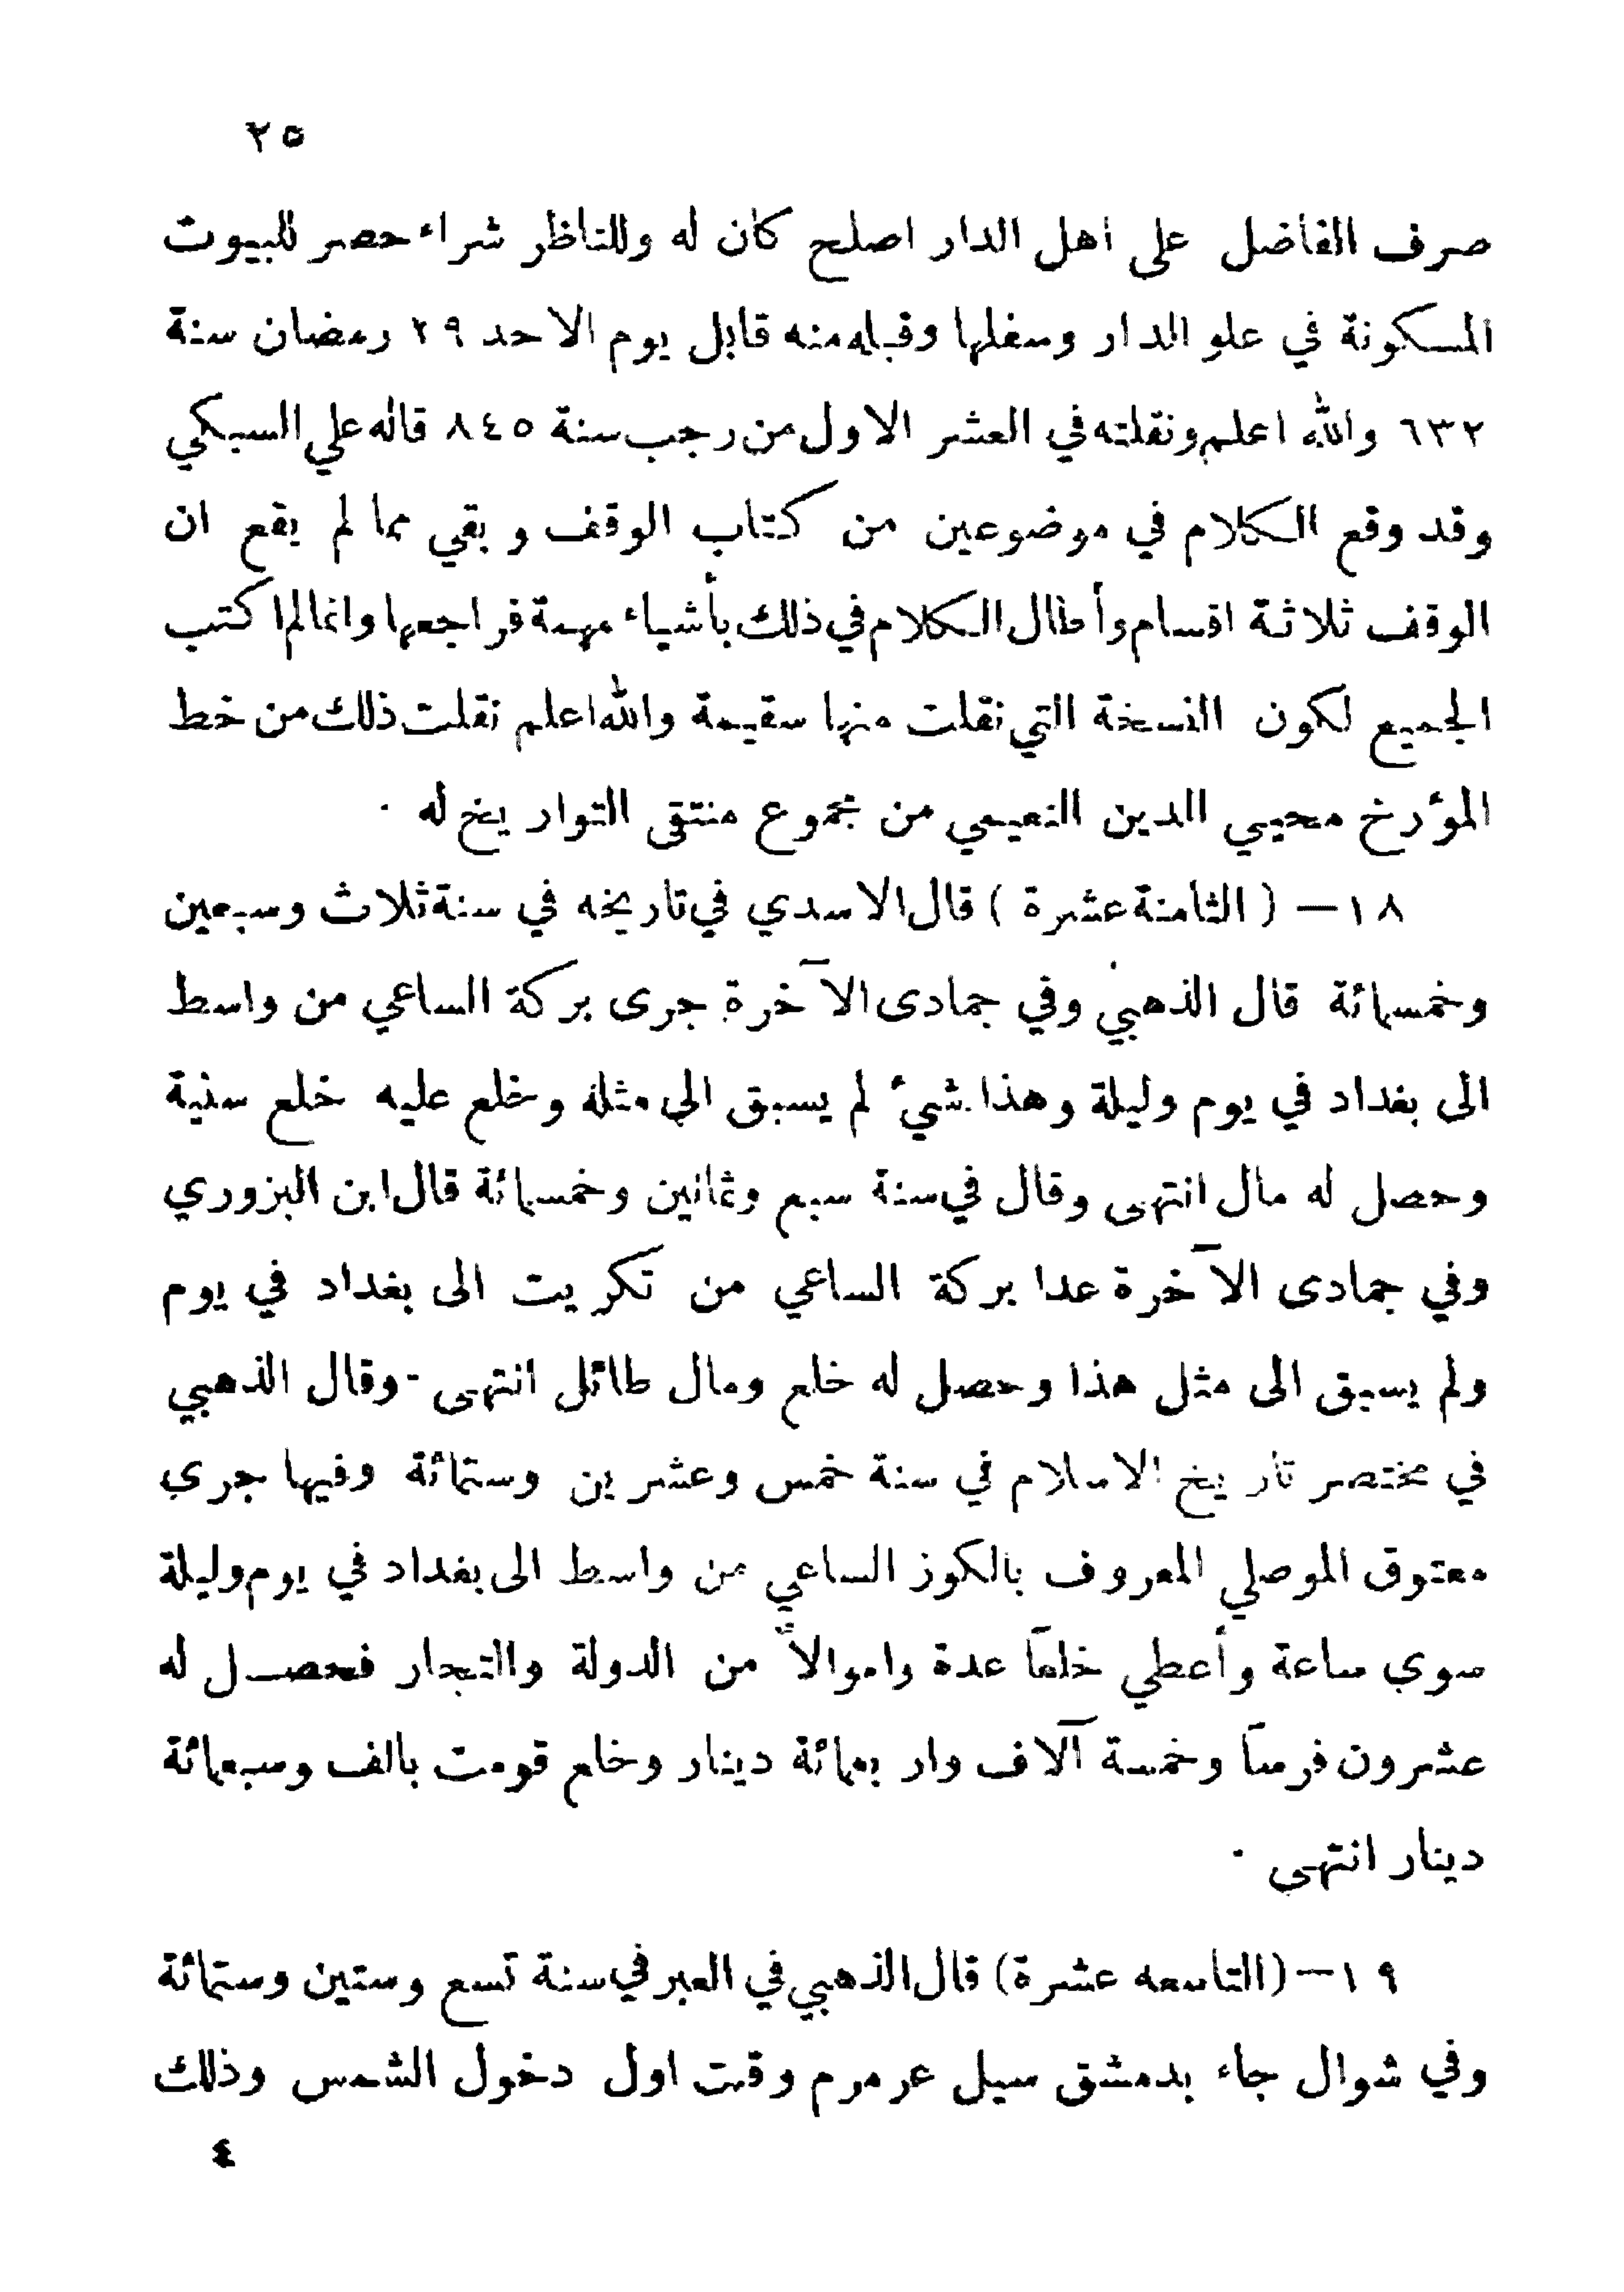 ٢٥
صرف الفاضل على اهل الدار اصلح كان له وللناظر شراء حصر للبيوت
المسكونة في علو الدار وسفلها وقبله منه قابل يوم الاحد ٢٩ رمضان سنة
٦٣٢ والله اعلم ونقلته في العشر الاول من رجب سنة ٨٤٥ قاله علي السبكي
وقد وقع الكلام في موضوعين من كتاب الوقف و بقي مما لم يقع ان
الوقف ثلاثة اقسام وأطال الكلام في ذلك بأشياء مهمة فراجعها وانما لم اكتب
الجميع لكون النسخة التي نقلت منها سقيمة والله اعلم نقلت ذلك من خط
المؤرخ محيي الدين النعيمي من مجموع منتقى التواريخ له ٠
١٨ – ( الثامنة عشرة ) قال الاسدي في تاريخه في سنة ثلاث وسبعين
وخمسمائة قال الذهبي وفي جمادى الآخرة جرى بركة الساعي من واسط
الى بغداد في يوم وليلة وهذا شيء لم يسبق الى مثله وخلع عليه خلع سنية
وحصل له مال انتهى وقال في سنة سبع وثمانين وخمسمائة قال ابن البزوري
وفي جمادى الآخرة عدا بركة الساعي من تكريت الى بغداد في يوم
ولم يسبق الى مثل هذا وحصل له خلع ومال طائل انتهى - وقال الذهبي
في مختصر تاريخ الاسلام في سنة خمس وعشرين وستمائة وفيها جرى
معتوق الموصلي المعروف بالكوز الساعي من واسط الى بغداد في يوم وليلة
سوى ساعة وأعطي خلعاً عدة واموالاً من الدولة والتجار فحصل له
عشرون فرساً وخمسة آلاف وار بعمائة دينار وخلع قومت بالف وسبعمائة
دينار انتهى ٠
١٩ – (التاسعه عشرة) قال الذهبي في العبر في سنة تسع وستين وستمائة
وفي شوال جاء بدمشق سيل عرمرم وقت اول دخول الشمس وذلك
٤